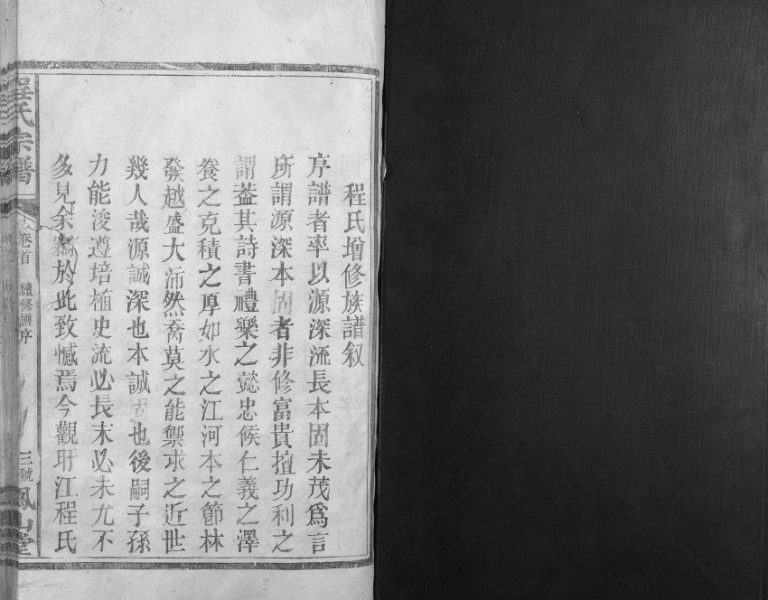 程氏增修族譜叙
序譜者率以源深流長本固末茂爲言
所謂源深本固者非修富貴擅功利之
謂葢其詩書禮樂之懿忠候仁義之澤
養之克積之厚如水之江河本之節林
發越盛大沛然矞莫之能禦求之近世
幾人哉源誠深也本誠固也後嗣子孫
力能浚遵培植史流必長末必未尤不
多見余竊於此致憾焉今觀盱江程氏
程氏宗譜
卷首 續修譜序
三號
鳳山堂